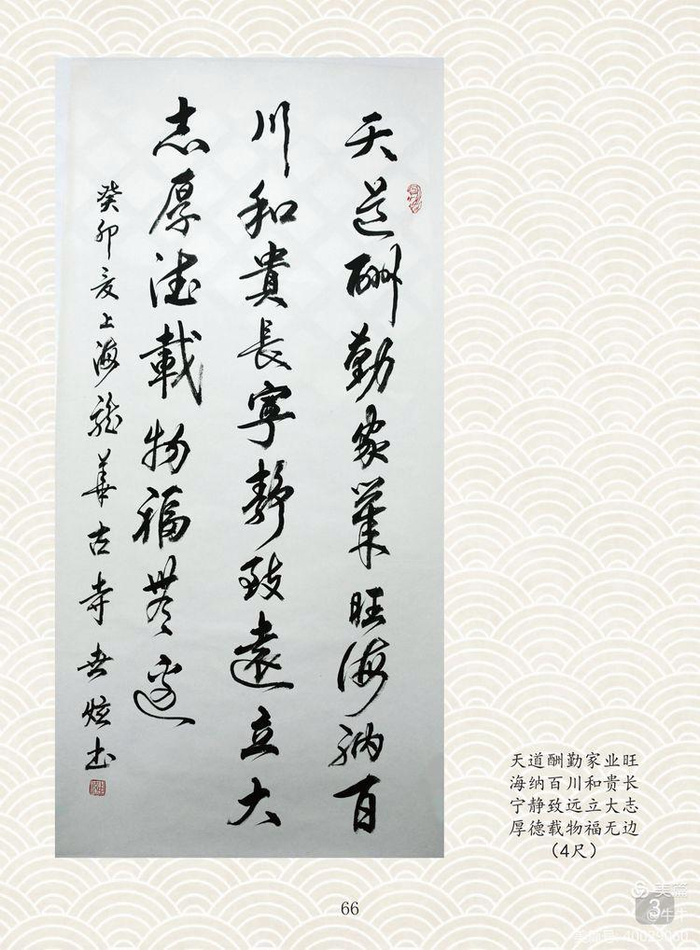 天道酬勤家業旺海納百
川和貴長寧靜致遠立大
志厚德載物福無邊
癸卯夏上海龍華古寺世炫书
天道酬勤家业旺
海纳百川和贵长
宁静致远立大志
厚德载物福无边
（4尺）
66
美篇
3
@牛牛